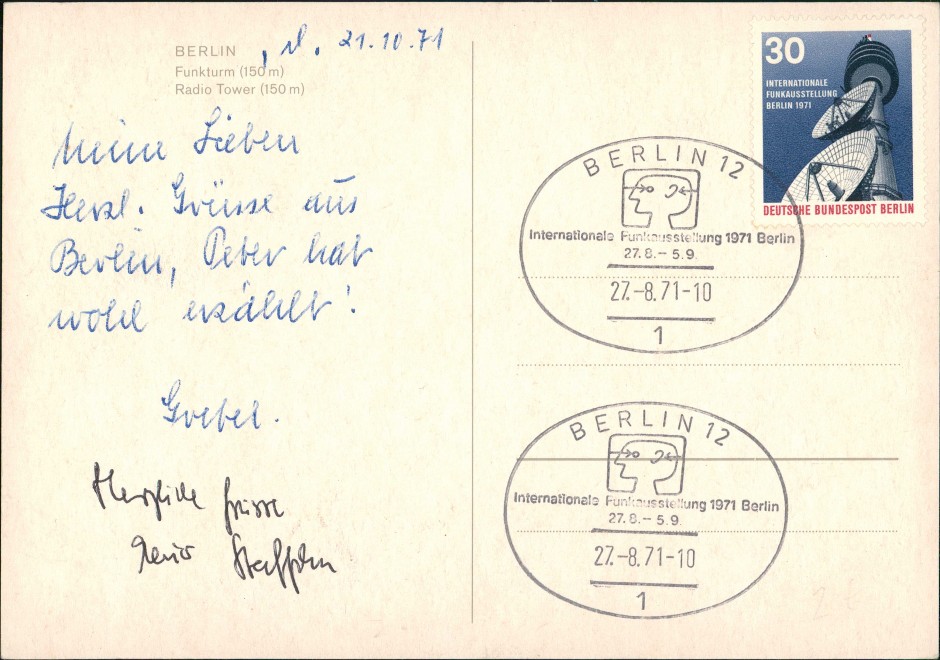 BERLIN, d. 21.10.71
Funkturm (150 m)
Radio Tower (150 m)
Meine Lieben
Herzl. Grüsse aus
Berlin, Peter hat
wohl erzählt!
Goebel.
Herzliche Grüsse
30
INTERNATIONALE
FUNKAUSSTELLUNG
BERLIN 1971
DEUTSCHE BUNDESPOST BERLIN
BERLIN 12
Internationale Funkausstellung 1971 Berlin
27.8.–5.9.
27.-8.71-10
1
BERLIN 12
Internationale Funkausstellung 1971 Berlin
27.8.–5.9.
27.-8.71-10
1